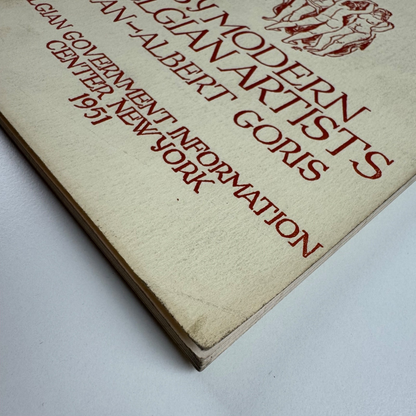 BY MODERN
BELGIAN ARTISTS
JAN-ALBERT GORIS
BELGIAN GOVERNMENT INFORMATION
CENTER NEW YORK
1951